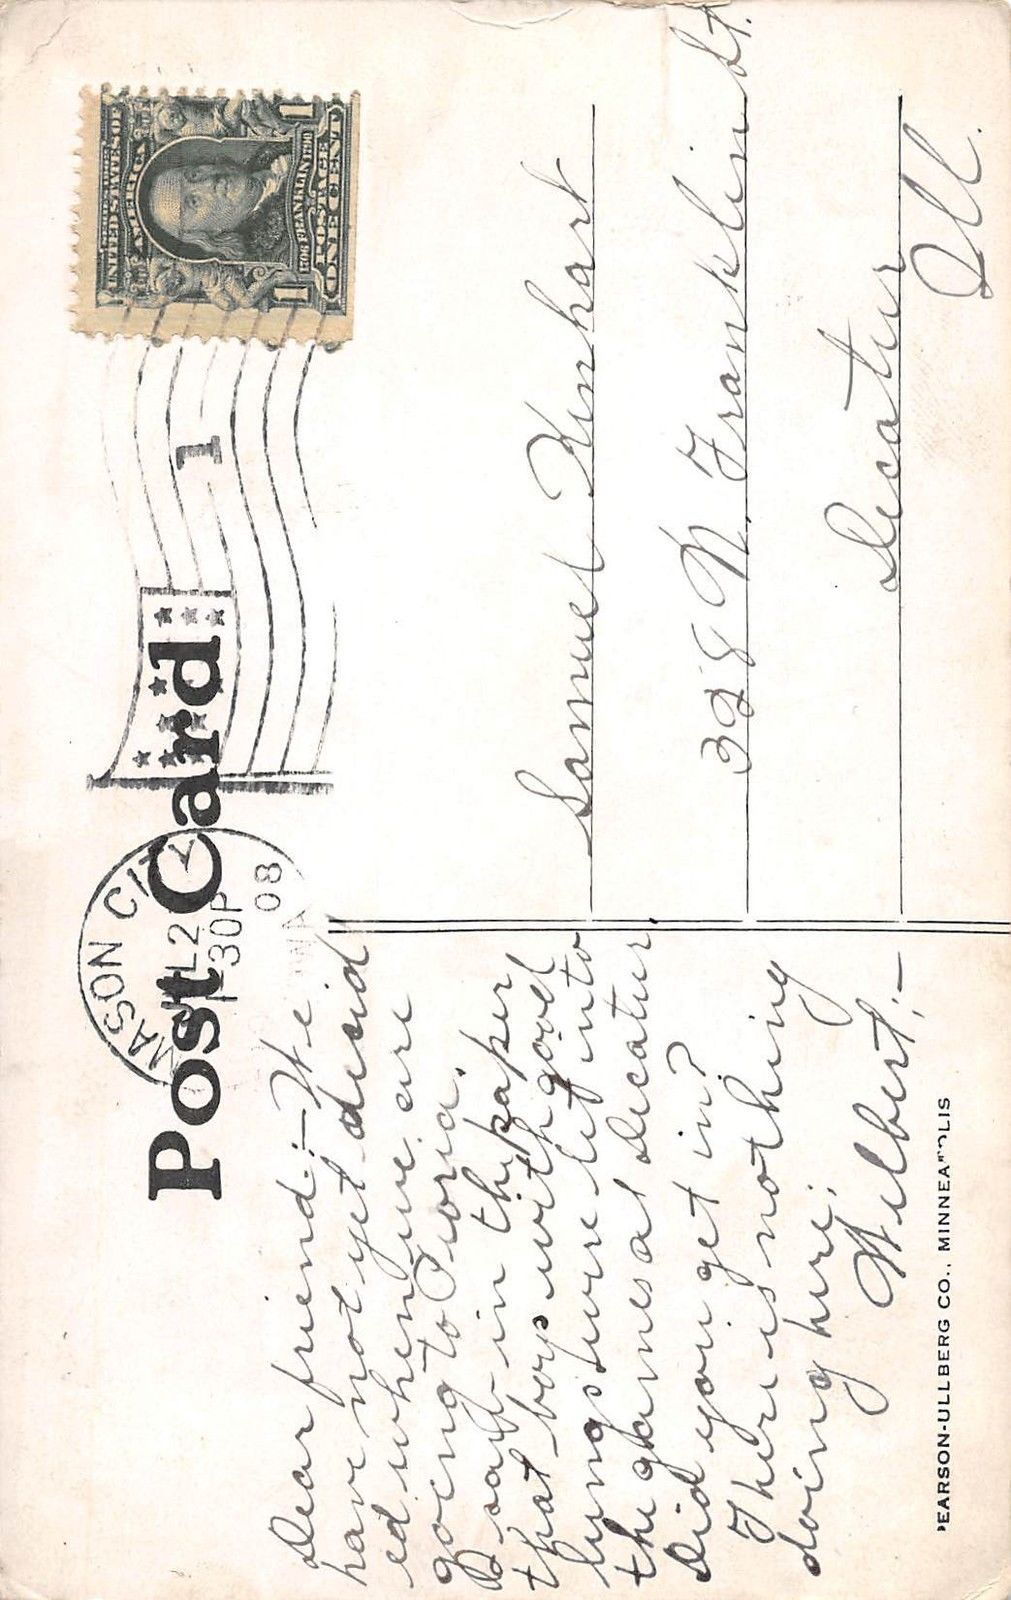 Post Card
MASON CITY
JUL 2
1 30P
08
IOWA
1
UNITED STATES OF
AMERICA
1706 FRANKLIN 1790
POSTAGE
1 ONE CENT 1
Dear friend:—We
have not yet decid
ed when we are
going to Peoria.
I saw in the paper
that boys with good
lungs were let into
the games at Decatur
Did you get in?
There is nothing
doing here.
Wilbert.—
Samuel Kinhart
328 N. Franklin St.
Decatur
Ill.
PEARSON-ULLBERG CO., MINNEAPOLIS